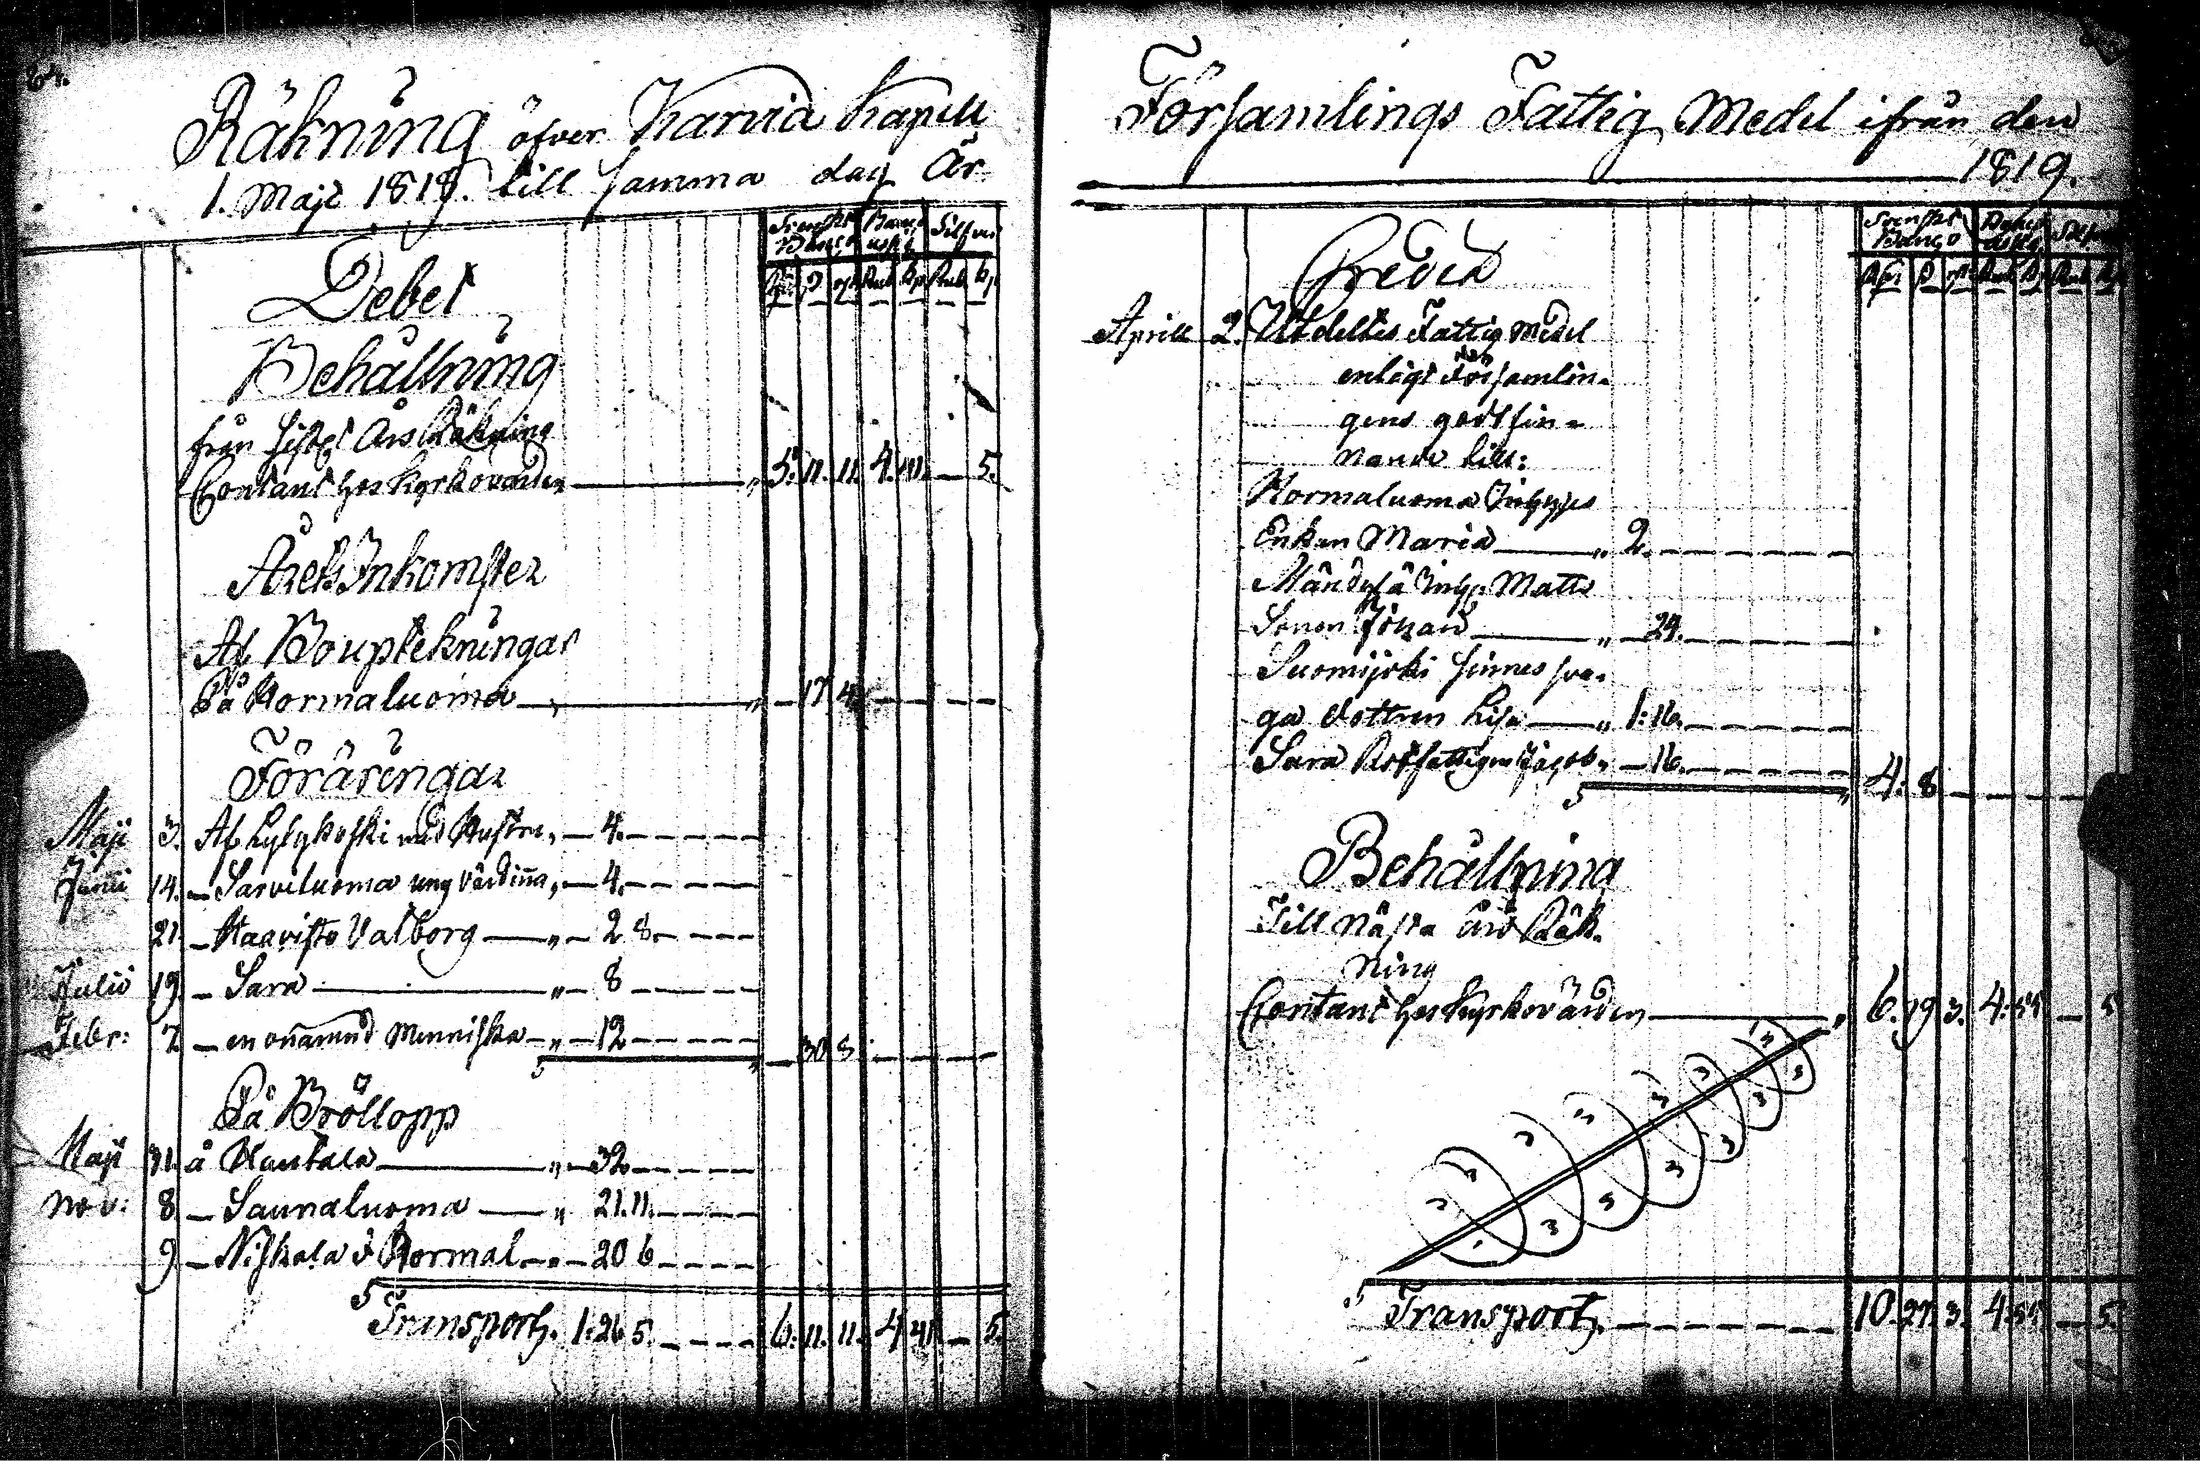 64.
Räkning öfver Karvia Kapell
1. Maji 1818. till samma dag År
Svenskt Banco Banco assig. Silfver
Rdr ß rst Rub. Kp Rub. Kp
Debet
Behållning
från sistl. Års Räkning
Contant hos Kyrkovärden „ 5. 11. 11. 4. 41. — 5.
Årets Inkomster
Af Bouptekningar
På Kormaluoma „ — 17 4 — — — —
Föräringar
Maji 3. Af Lylykoski med Hustru „ — 4. — — — —
Junii 14. — Sarviluoma ung Värdinna „ — 4. — — — —
21. — Haavisto Valborg „ — 2 8. — — —
Julii 19. — Sara „ — 8 — — — —
Febr: 7 — en onämnd Menniska „ — 12 — — — — „ — 30 8 — — — —
På Bröllopp
Maji 31. å Kantala „ — 32 — — — —
Nov: 8. — Saunaluoma „ 21. 11. — — — —
9. — Niskala å Kormal. „ — 20 6 — — — —
Transport. 1: 26 5. — — — — 6. 11. 11. 4 41 — 5.
Församlings Fattig Medel ifrån den
1819.
Svenskt Banco Banco assig. Silfver
Rdr ß rst Rub. Kp Rub. Kp
Credit
Aprill 2. Utdeltes Fattig Medel
enligt Församlin-
gens godtfin-
nande till:
Kormaluoma Inhyses
Enkan Maria „ 2. — — — — —
Mändylä Inhs. Matts
Sonen Johan „ — 24. — — — —
Suomijoki sinnes sva-
ga dottren Lisa „ 1: 16. — — — —
Sara Rotfattigen Jacob „ — 16. — — — — „ 4: 8 — — — — —
Behållning
Till Nästa Års Räk-
ning
Contant hos Kyrkovärden „ 6. 19 3. 4: 41 — 5
Transport. — — — — — — 10. 27. 3. 4: 41 — 5.